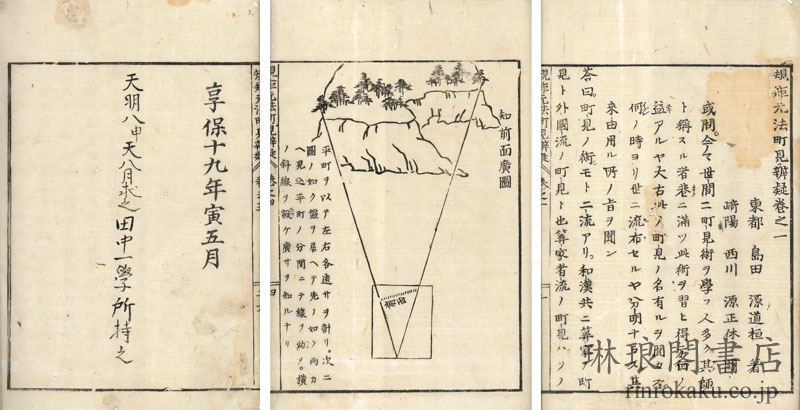 規矩元法町見辨疑卷之一
東都 島田 源道桓 著
崎陽 西川 源正休 閲
或問。今々世間ニ町見術ヲ學フ人多ク其師
ト稱スル者巷ニ滿ツ此術ヲ習ヒ得
益アルヤ大古此ノ町見ノ名有ルヲ聞カス
何ノ時ヨリ世ニ流布セルヤ分明ナラス其
來由用ル所ノ旨ヲ聞ン
答曰町見ノ術モト二流アリ。和漢共ニ算家ノ町
見ト外國流ノ町見ト也算家者流ノ町見ハソノ
知前面廣圖
平町ヲ以テ左右各遠サヲ計リ。次ニ
圖ノ如ク盤ヲ居ヘテ先ノ如ク両カ
ヘ見込平町ノ分間ニテ線ヲ
ノ斜線ヲ設ケ廣サヲ知ルナリ
享保十九年寅五月
天明八申天八月求之 田中一學所持之
琳琅閣書店
rinrokaku.co.jp